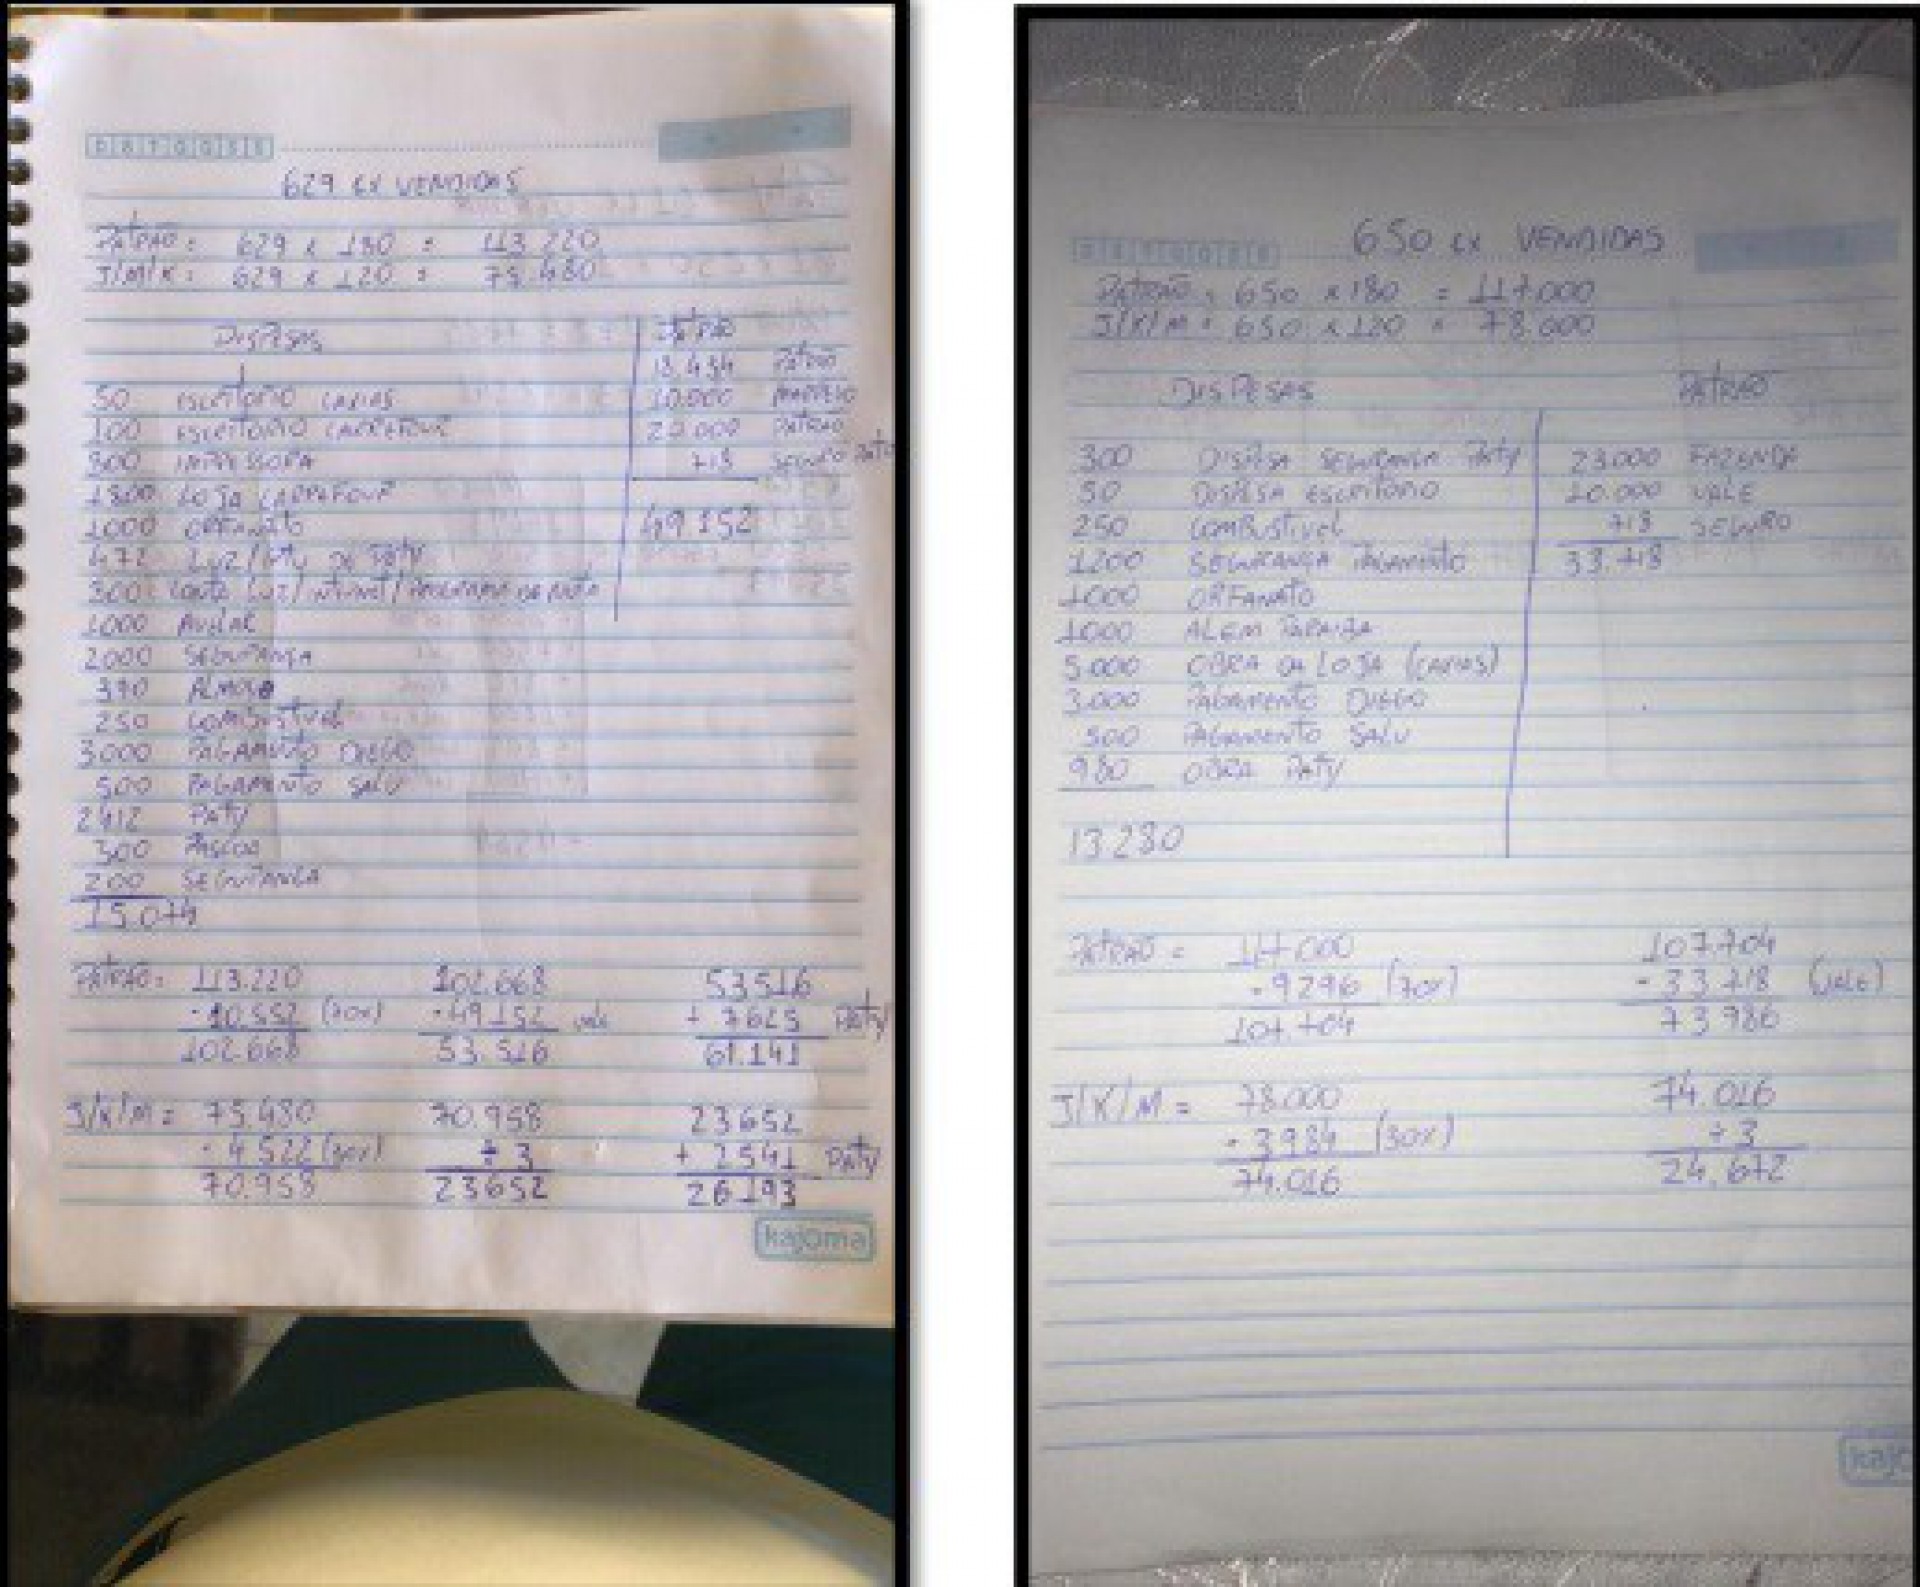 DATGGSS
629 CX VENDIDAS
PATRÃO = 629 x 180 = 113.220
J/M/K = 629 x 120 = 75.480
DISPESAS
PATRÃO
13.434 PATRÃO
50 ESCRITORIO CAXIAS
10.000 MARRETO
100 ESCRITORIO CARREFOUR
20.000 PATRÃO
300 IMPRESSORA
718 SEGURO PATRÃO
1800 LOJA CARREFOUR
1000 ORFANATO
49.152
472 LUZ/ DE PATY
300 CONTA LUZ/INTERNET/PROGRAMA DE NOTA
1000 AVELAR
2000 SEGURANÇA
390 ALMOÇO
250 COMBUSTIVEL
3000 PAGAMENTO DIEGO
500 PAGAMENTO SALU
2412 PATY
300 PASCOA
200 SEGURANÇA
15.074
PATRÃO = 113.220 102.668 53516
- 10.552 (70%) - 49.152 vale + 7625 PATY
102.668 53.516 61.141
J/K/M = 75.480 70.958 23652
- 4522 (30%) ÷ 3 + 2541 PATY
70.958 23652 26193
kajoma
650 CX VENDIDAS
PATRÃO = 650 x 180 = 117.000
J/K/M = 650 x 120 = 78.000
DISPESAS PATRÃO
300 DISPESA SEGURANÇA PATY 23000 FAZENDA
50 DISPESA ESCRITORIO 10.000 VALE
250 COMBUSTIVEL 718 SEGURO
1200 SEGURANÇA PAGAMENTO 33.718
1000 ORFANATO
1000 ALEM PARAIBA
5.000 OBRA DA LOJA (CAXIAS)
3.000 PAGAMENTO DIEGO
500 PAGAMENTO SALU
980 OBRA PATY
13280
PATRÃO = 117.000 107.704
- 9296 (70%) - 33.718 (VALE)
107.704 73986
J/K/M = 78.000 74.016
- 3984 (30%) ÷ 3
74.016 24.672